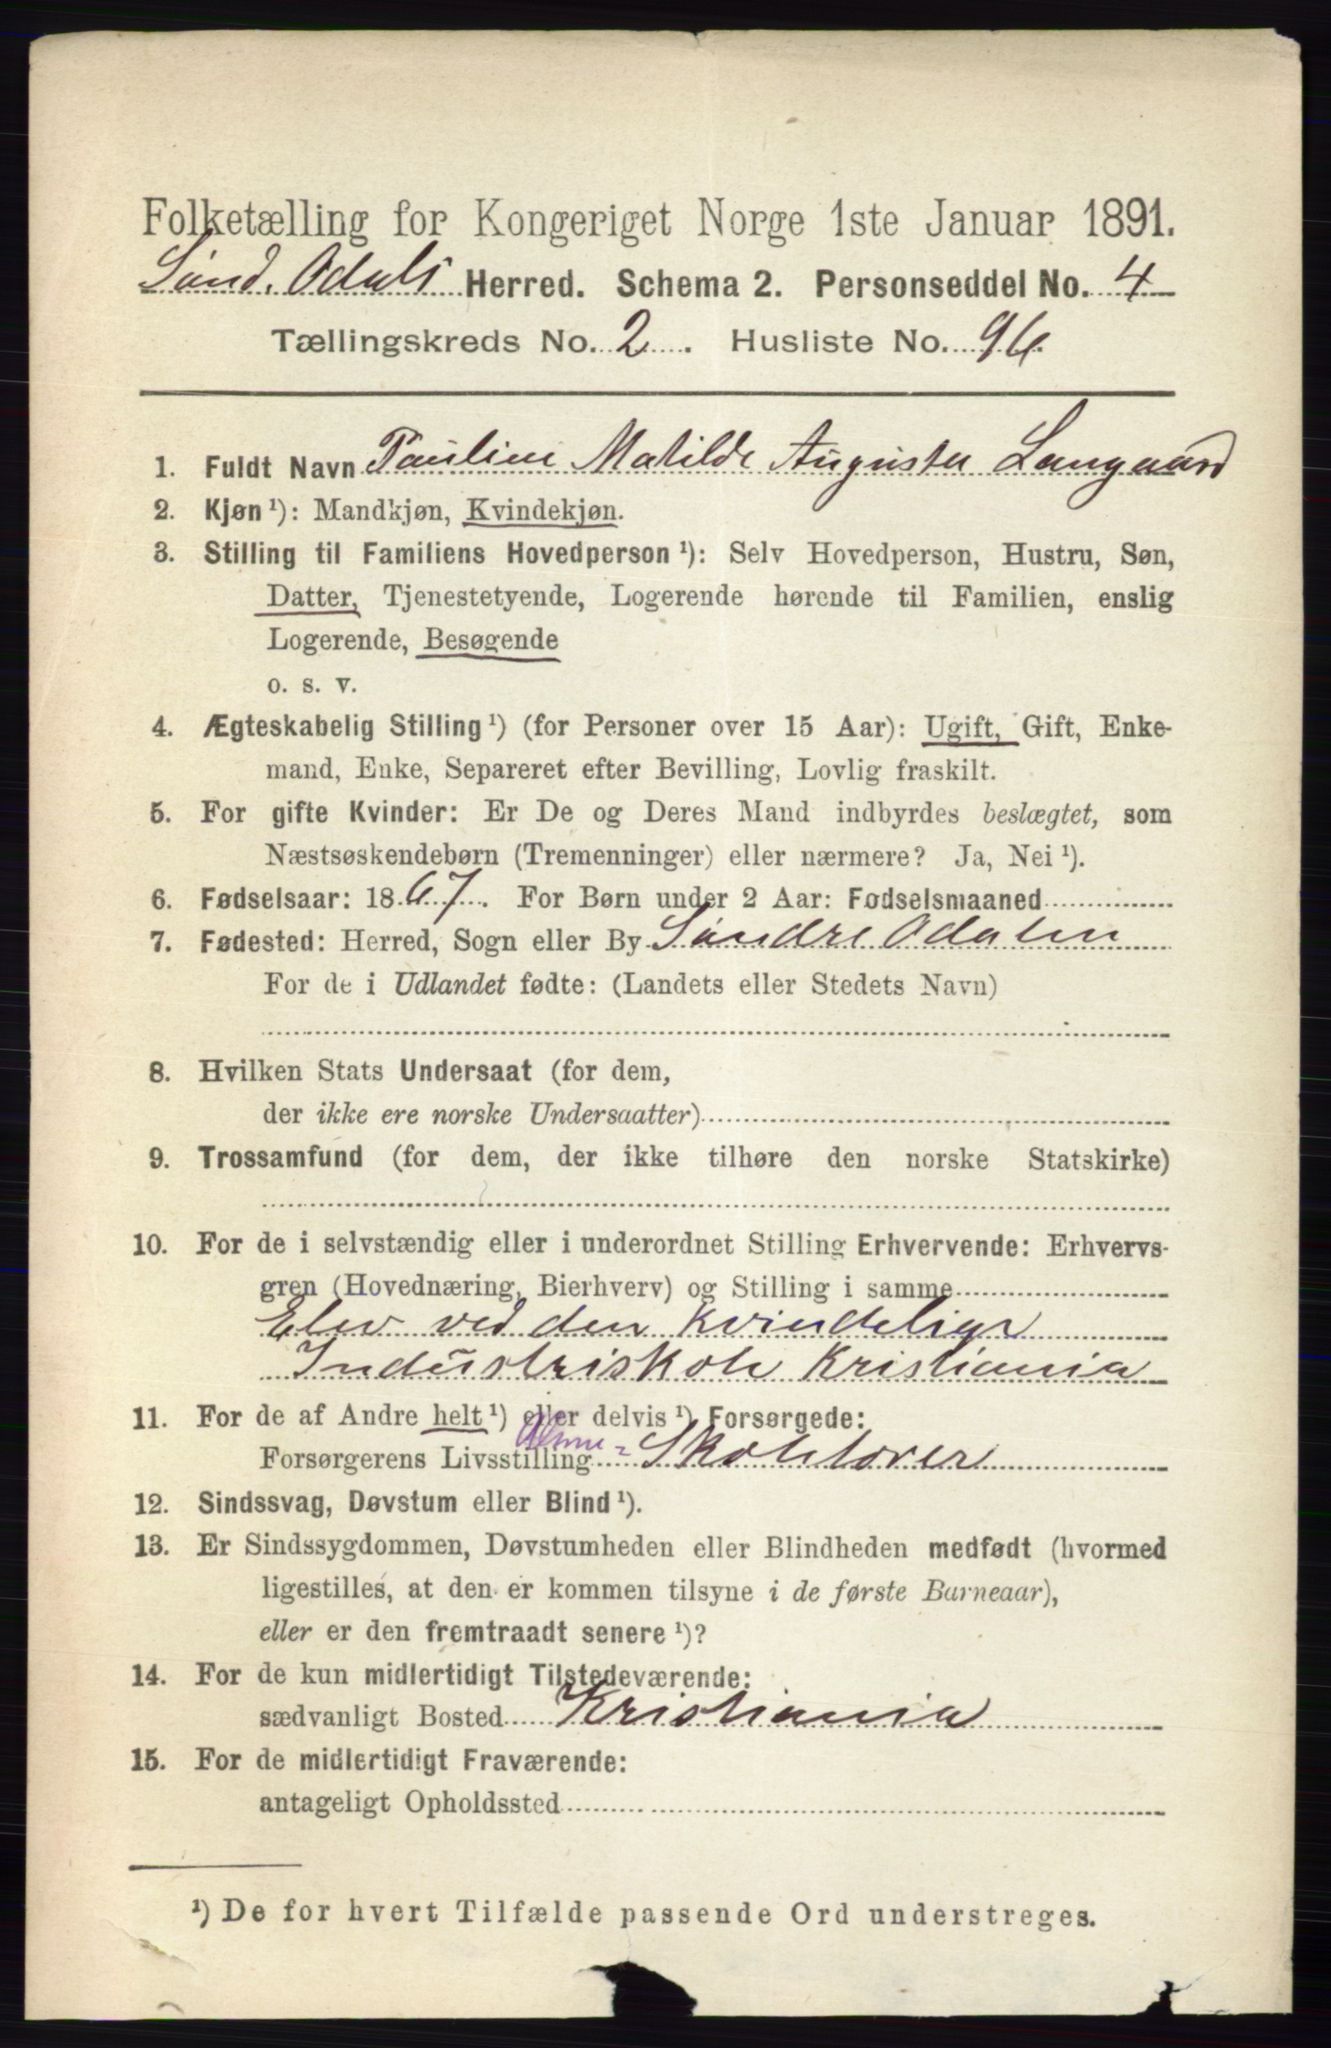 Folketælling for Kongeriget Norge 1ste Januar 1891.
Sønd. Odals Herred. Schema 2. Personseddel No. 4
Tællingskreds No. 2. Husliste No. 96.
1. Fuldt Navn Pauline Matilde Augusta Langaard
2. Kjøn ¹): Mandkjøn, Kvindekjøn.
3. Stilling til Familiens Hovedperson ¹): Selv Hovedperson, Hustru, Søn,
Datter, Tjenestetyende, Logerende hørende til Familien, enslig
Logerende, Besøgende
o. s. v.
4. Ægteskabelig Stilling ¹) (for Personer over 15 Aar): Ugift, Gift, Enke-
mand, Enke, Separeret efter Bevilling, Lovlig fraskilt.
5. For gifte Kvinder: Er De og Deres Mand indbyrdes beslægtet, som
Næstsøskendebørn (Tremenninger) eller nærmere? Ja, Nei ¹).
6. Fødselsaar: 1867. For Børn under 2 Aar: Fødselsmaaned
7. Fødested: Herred, Sogn eller By Søndre Odalen
For de i Udlandet fødte: (Landets eller Stedets Navn)
8. Hvilken Stats Undersaat (for dem,
der ikke ere norske Undersaatter)
9. Trossamfund (for dem, der ikke tilhøre den norske Statskirke)
10. For de i selvstændig eller i underordnet Stilling Erhvervende: Erhvervs-
gren (Hovednæring, Bierhverv) og Stilling i samme
Elev ved den kvindelige
Industriskole Kristiania
11. For de af Andre helt ¹) eller delvis ¹) Forsørgede:
Forsørgerens Livsstilling Almue- Skolelærer
12. Sindssvag, Døvstum eller Blind ¹).
13. Er Sindssygdommen, Døvstumheden eller Blindheden medfødt (hvormed
ligestilles, at den er kommen tilsyne i de første Barneaar),
eller er den fremtraadt senere ¹)?
14. For de kun midlertidigt Tilstedeværende:
sædvanligt Bosted Kristiania
15. For de midlertidigt Fraværende:
antageligt Opholdssted
¹) De for hvert Tilfælde passende Ord understreges.